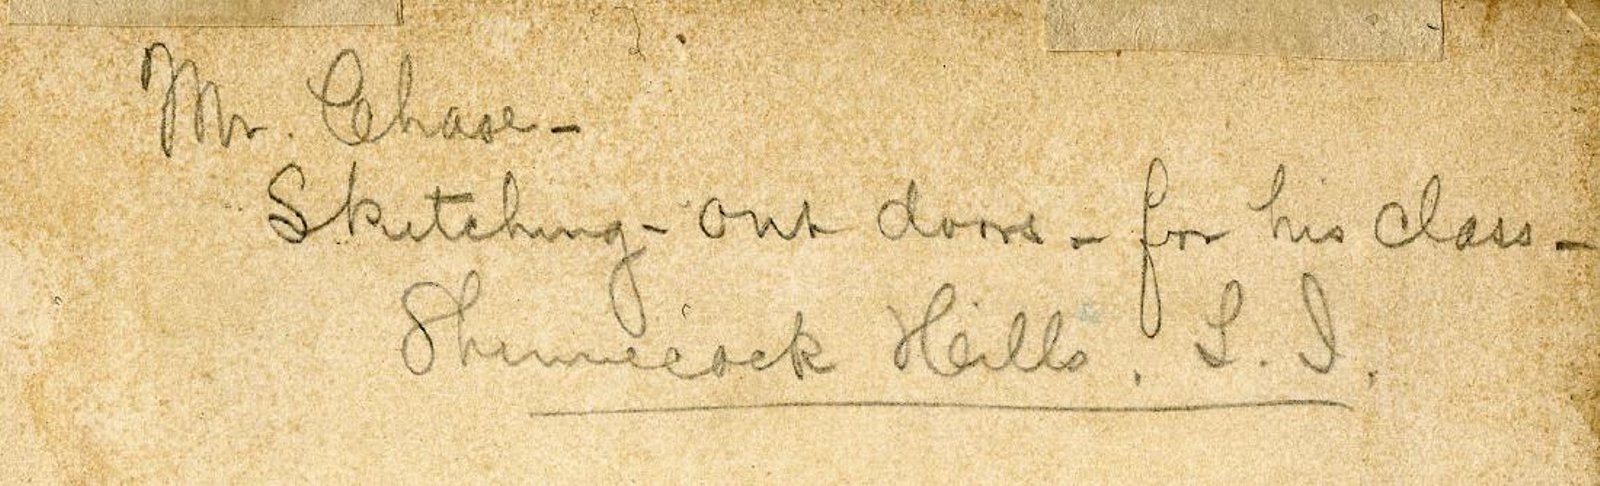 Mr. Chase -
Sketching - out doors - for his class -
Shinnecock Hills. L. I.